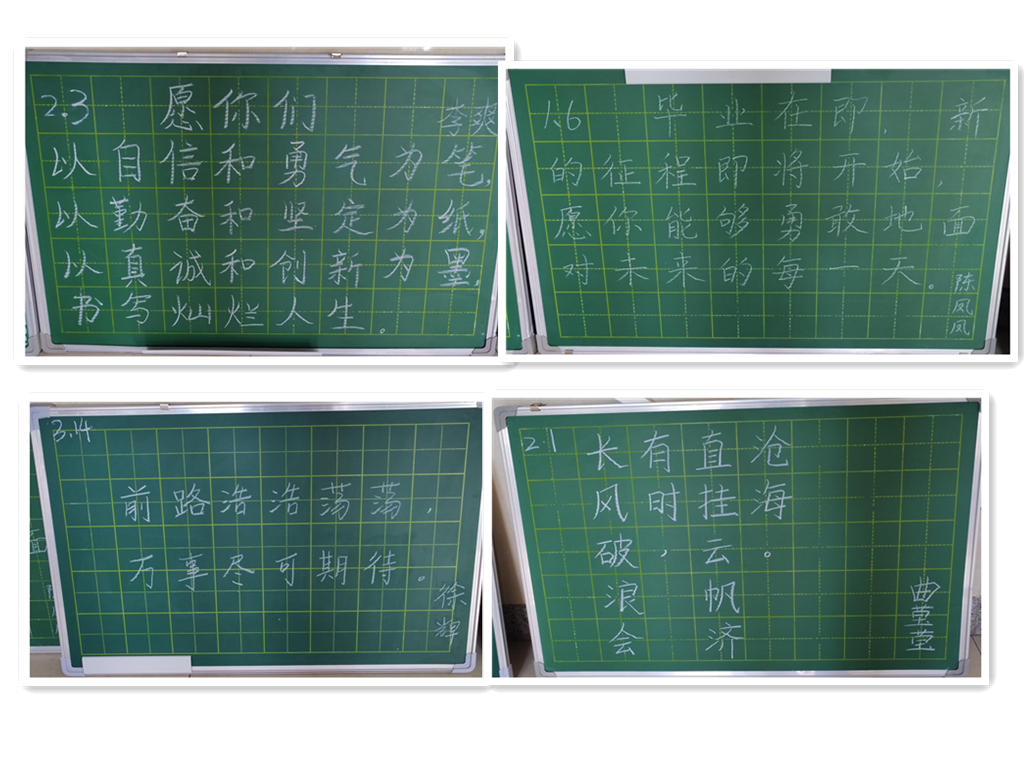 2.3 愿你们 李爽
以自信和勇气为笔,
以勤奋和坚定为纸,
以真诚和创新为墨,
书写灿烂人生。
1.6 毕业在即, 新
的征程即将开始,
愿你能够勇敢地面
对未来的每一天。
陈凤凤
3.14
前路浩浩荡荡,
万事尽可期待。
徐辉
2.1
长风破浪会
有时,
直挂云帆济
沧海。
曲莹莹